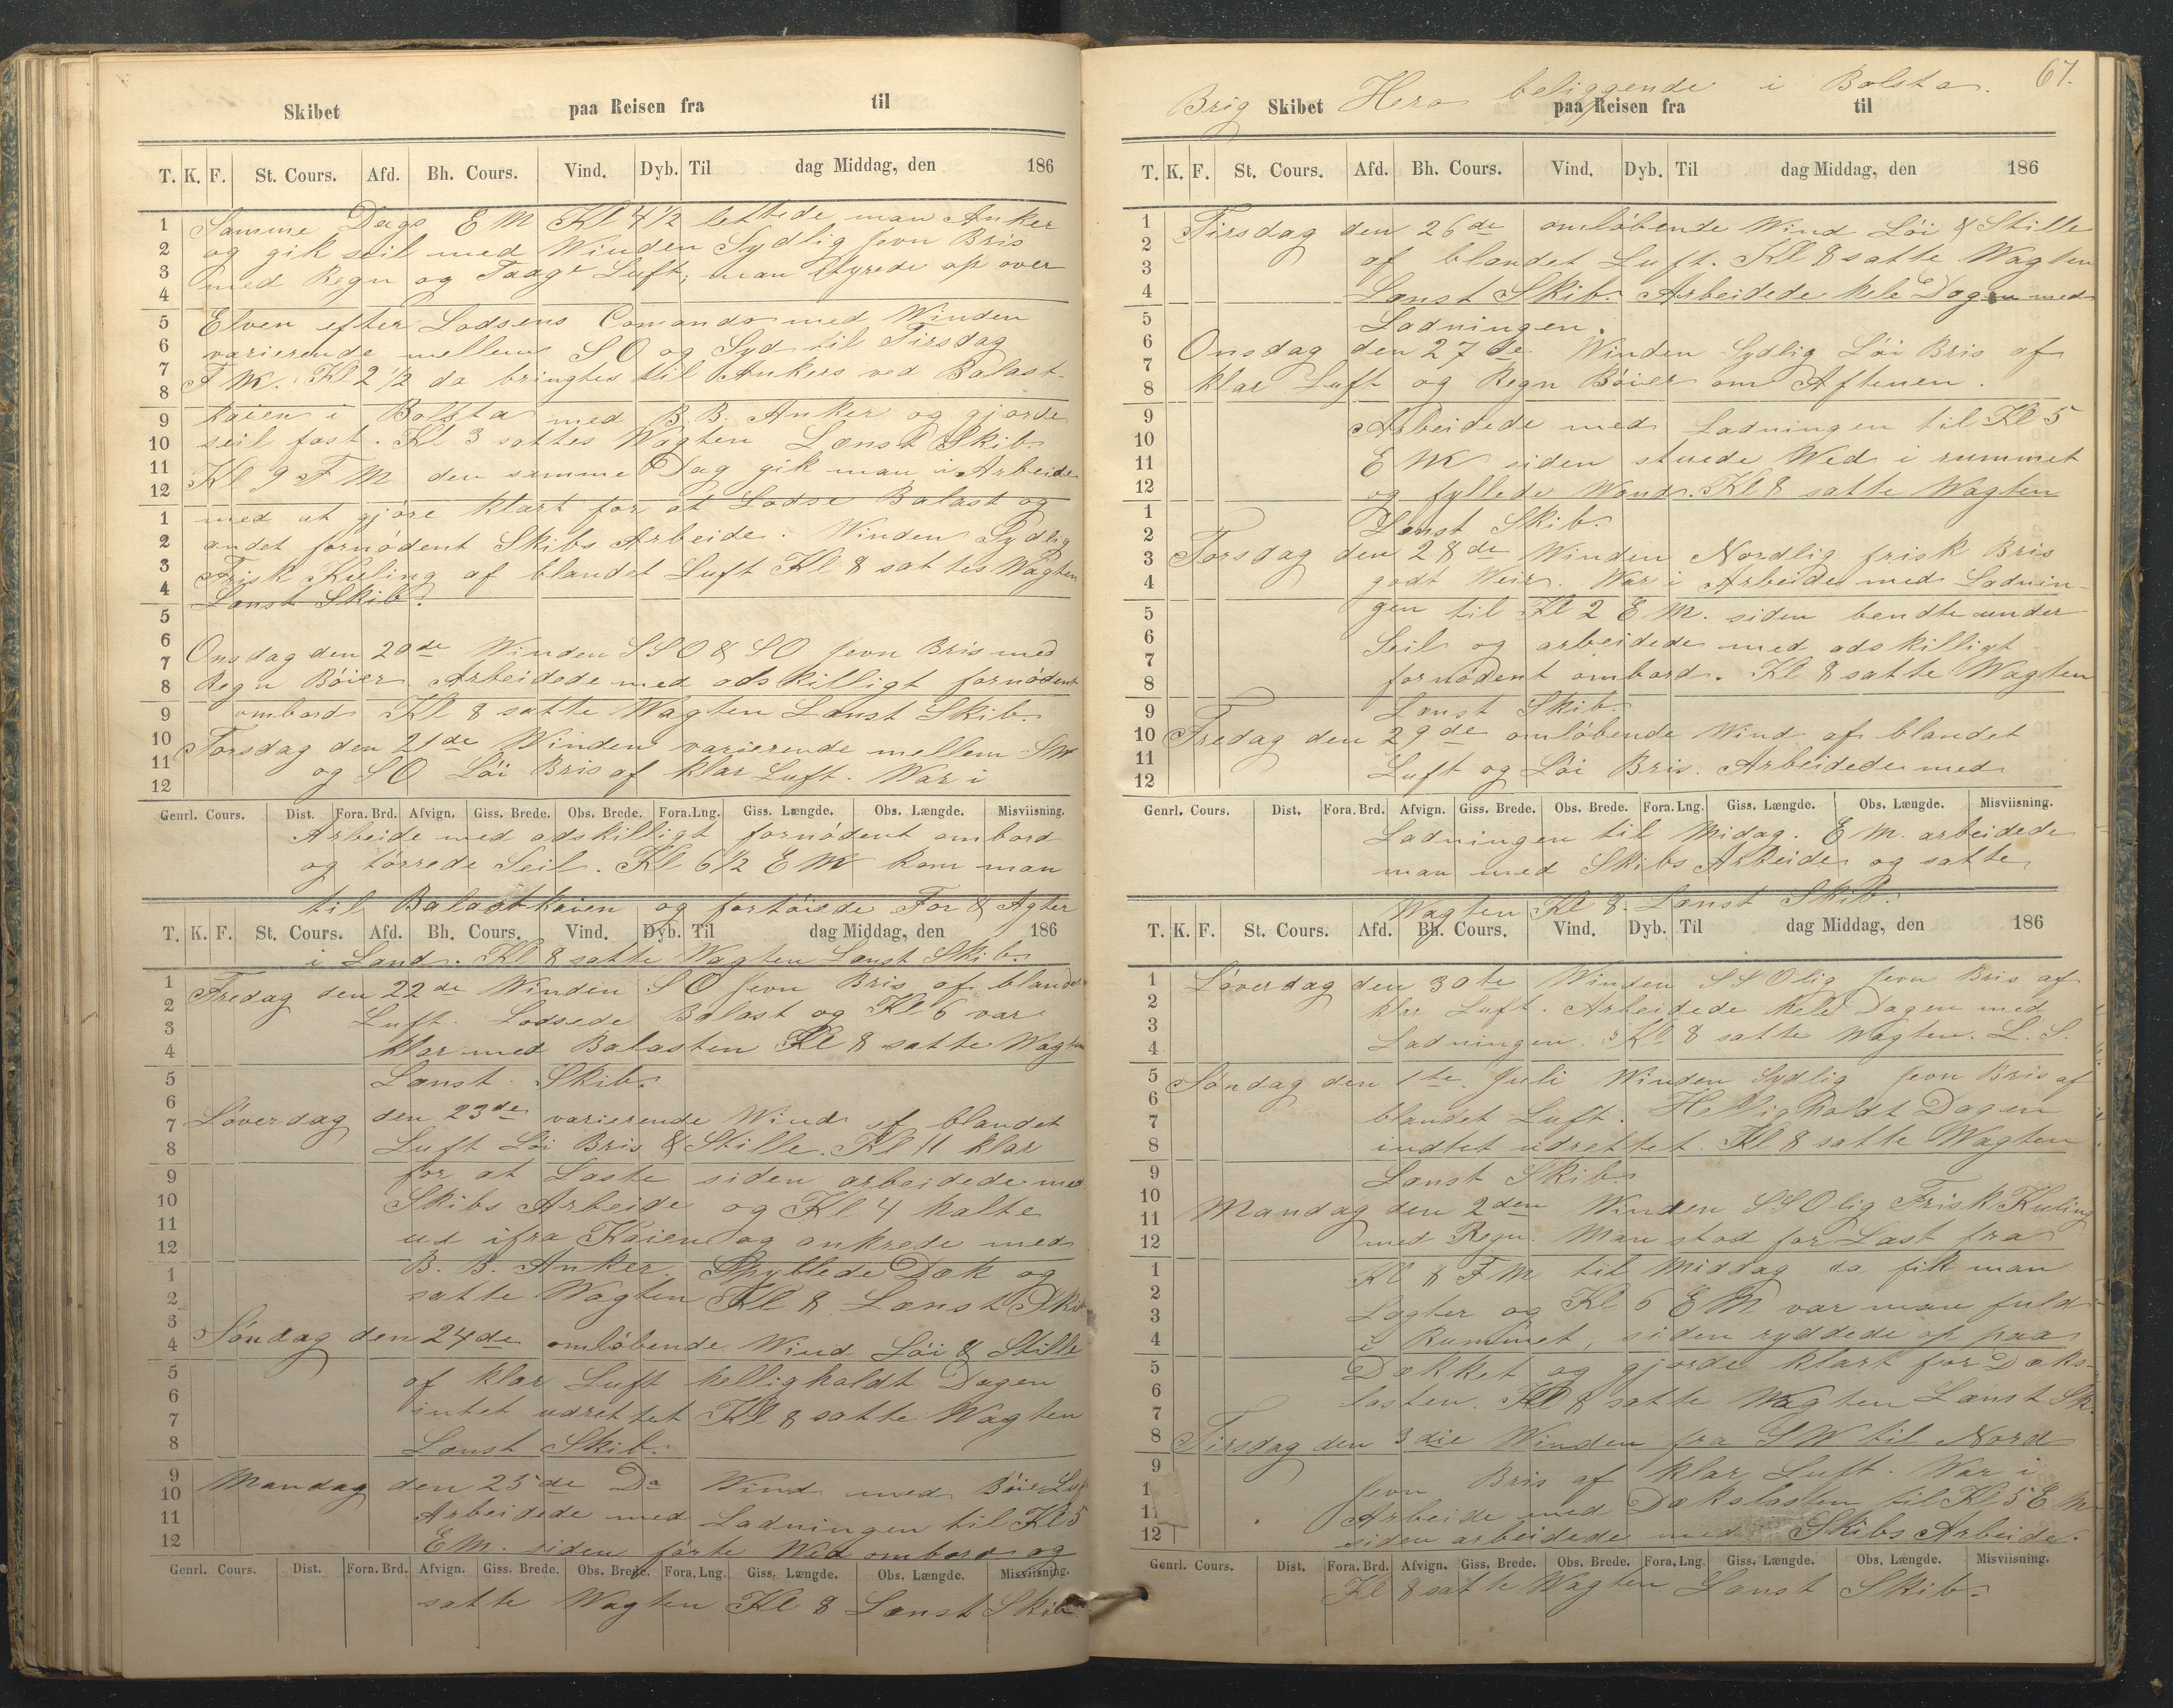 Skibet paa Reisen fra til
T. K. F. St. Cours. Afd. Bh. Cours. Vind. Dyb. Til dag Middag, den 186
Samme Dags E M Kl 4 1/2 lettede man Anker
og gik seil med Winden Sydlig Jevn Bris
med Regn og Taage Luft, man styrede op over
Elven efter Lodsens Comando med Winden
varierende mellem S O og Syd til Tirsdag
F M. Kl 2 1/2 da bringtes til Ankers ved Balast-
kaien i Bolsta med B. B. Anker og gjorde
seil fast. Kl 3 sattes Wagten Lænst Skib
Kl 9 F M den samme Dag gik man i Arbeide
med at gjøre klart for at Losse Balast og
andet fornødent Skibs Arbeide. Winden Sydlig
Frisk Kuling af blandet Luft Kl 8 sattes Wagten
Lænst Skib.
Onsdag den 20de Winden S S O & S O Jevn Bris med
Regn Bøier. Arbeidede med adskilligt fornødent
ombord Kl 8 satte Wagten Lænst Skib.
Torsdag den 21de Winden varierende mellem S W
og S O Løi Bris af klar Luft. War i
Genrl. Cours. Dist. Fora. Brd. Afvign. Giss. Brede. Obs. Brede. Fora. Lng. Giss. Længde. Obs. Længde. Misviisning.
Arbeide med adskilligt fornødent ombord
og tørrede Seil. Kl 6 1/2 E M kom man
til Balastkaien og fortøiede For & Agter
T. K. F. St. Cours. Afd. Bh. Cours. Vind. Dyb. Til dag Middag, den 186
i Land. Kl 8 satte Wagten Lænst Skib.
Fredag den 22de Winden S O Jevn Bris af bland
Luft. Lodsede Balast og Kl 6 var
klar med Balasten Kl 8 satte Wagten
Lænst Skib.
Løverdag den 23de varierende Wind af blandet
Luft Løi Bris & Stille. Kl 11 klar
for at Laste siden arbeidede med
Skibs Arbeide og Kl 4 halte
ud ifra Kaien og ankrede med
B. B. Anker. Spyllede Dæk og
satte Wagten Kl 8 Lænst Skib
Søndag den 24de omløbende Wind Løi & Stille
af klar Luft helligholdt Dagen
intet udrettet Kl 8 satte Wagten
Lænst Skib.
Mandag den 25de Do Wind med Bøier
Arbeidede med Ladningen til Kl 5
E M. siden førte Wed ombord og
Genrl. Cours. Dist. Fora. Brd. Afvign. Giss. Brede. Obs. Brede. Fora. Lng. Giss. Længde. Obs. Længde. Misviisning.
satte Wagten Kl 8 Lænst Skib
67.
Brig Skibet Hera beliggende i Bolsta.
paa Reisen fra til
T. K. F. St. Cours. Afd. Bh. Cours. Vind. Dyb. Til dag Middag, den 186
Tirsdag den 26de omløbende Wind Løi & Stille
af blandet Luft. Kl 8 satte Wagten
Lænst Skib. Arbeidede hele Dagen med
Ladningen.
Onsdag den 27de Winden Sydlig Løi Bris af
klar Luft og Regn Bøier om Aftenen.
Arbeidede med Ladningen til Kl 5
E M siden stuede Wed i rummet
og fyllede Wand. Kl 8 satte Wagten
Lænst Skib.
Torsdag den 28de Winden Nordlig frisk Bris
godt Weir. War i Arbeide med Ladnin-
gen til Kl 2 E M. siden bendte under
Seil og arbeidede med adskilligt
fornødent ombord. Kl 8 satte Wagten
Lænst Skib.
Fredag den 29de omløbende Wind af blandet
Luft og Løi Bris. Arbeidede med
Genrl. Cours. Dist. Fora. Brd. Afvign. Giss. Brede. Obs. Brede. Fora. Lng. Giss. Længde. Obs. Længde. Misviisning.
Ladningen til Midag. E M. arbeidede
man med Skibs Arbeide og satte
Wagten Kl 8. Lænst Skib.
T. K. F. St. Cours. Afd. Bh. Cours. Vind. Dyb. Til dag Middag, den 186
Løverdag den 30te Winden S S Olig Jevn Bris af
klar Luft. Arbeidede hele Dagen med
Ladningen. Kl 8 satte Wagten. L. S.
Søndag den 1te Juli Winden Sydlig Jevn Bris af
blandet Luft. Helligholdt Dagen
indtet udrettet. Kl 8 satte Wagten
Lænst Skib.
Mandag den 2den Winden S S Olig Frisk Kuling
med Regn. Man stod for Last fra
Kl 8 F M til Middag da fik man
Lægter og Kl 6 E M var man fuld
i Rummet, siden ryddede op paa
Dækket og gjorde klart for Dæks-
lasten. Kl 8 satte Wagten Lænst Sk.
Tirsdag den 3die Winden fra S W til Nord
Jevn Bris af klar Luft. War i
Arbeide med Dækslasten til Kl 5 E M
siden arbeidede med Skibs Arbeide.
Genrl. Cours. Dist. Fora. Brd. Afvign. Giss. Brede. Obs. Brede. Fora. Lng. Giss. Længde. Obs. Længde. Misviisning.
Kl 8 satte Wagten Lænst Skib.